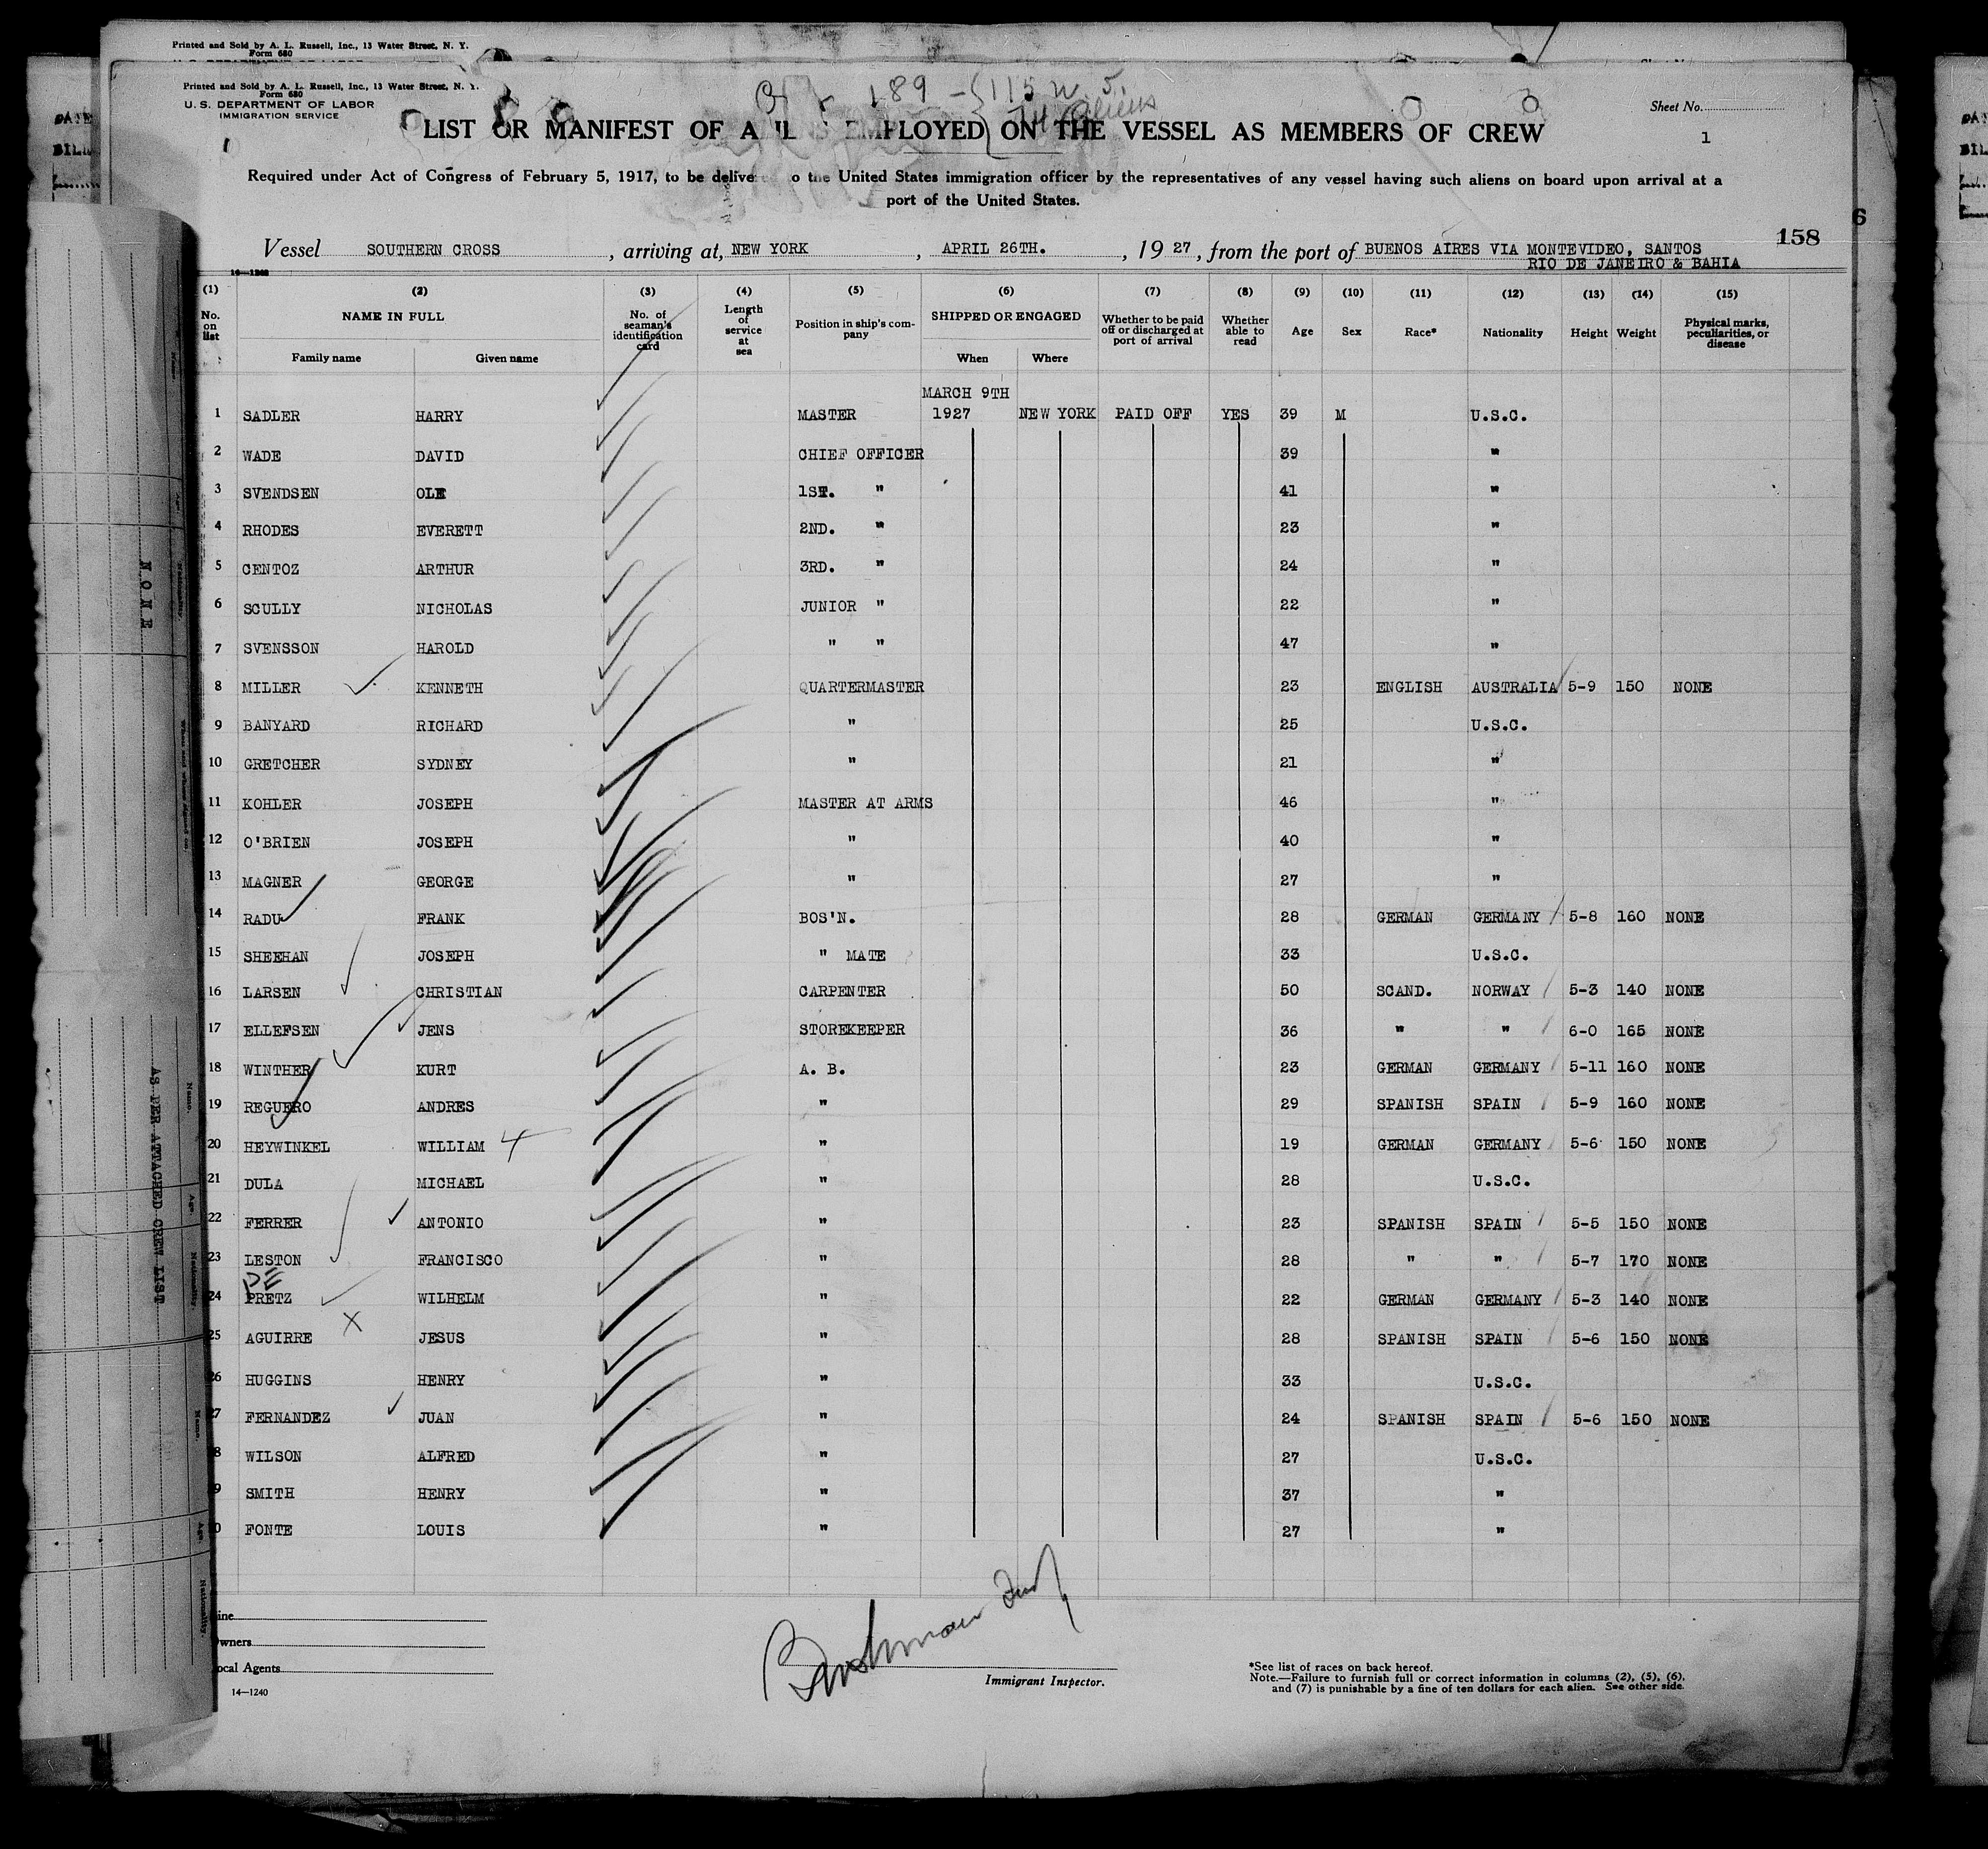 Printed and Sold by A. L. Russell, Inc., 13 Water Street, N. Y.
Form 680
Printed and Sold by A. L. Russell, Inc., 13 Water Street, N. Y.
Form 680
U. S. DEPARTMENT OF LABOR
IMMIGRATION SERVICE
189 - { 115 U. S.
74 Aliens
Sheet No.
1
LIST OR MANIFEST OF ALIENS EMPLOYED ON THE VESSEL AS MEMBERS OF CREW
Required under Act of Congress of February 5, 1917, to be delivered to the United States immigration officer by the representatives of any vessel having such aliens on board upon arrival at a
port of the United States.
158
Vessel SOUTHERN CROSS, arriving at, NEW YORK, APRIL 26TH., 1927, from the port of BUENOS AIRES VIA MONTEVIDEO, SANTOS
RIO DE JANEIRO & BAHIA
14—1240
(1) (2) (3) (4) (5) (6) (7) (8) (9) (10) (11) (12) (13) (14) (15)
No. on list NAME IN FULL Family name Given name No. of seaman's identification card Length of service at sea Position in ship's company SHIPPED OR ENGAGED When Where Whether to be paid off or discharged at port of arrival Whether able to read Age Sex Race* Nationality Height Weight Physical marks, peculiarities, or disease
MARCH 9TH
1 SADLER HARRY MASTER 1927 NEW YORK PAID OFF YES 39 M U.S.C.
2 WADE DAVID CHIEF OFFICER 39 "
3 SVENDSEN OLE 1ST. " 41 "
4 RHODES EVERETT 2ND. " 23 "
5 CENTOZ ARTHUR 3RD. " 24 "
6 SCULLY NICHOLAS JUNIOR " 22 "
7 SVENSSON HAROLD " " 47 "
8 MILLER KENNETH QUARTERMASTER 23 ENGLISH AUSTRALIA 5-9 150 NONE
9 BANYARD RICHARD " 25 U.S.C.
10 GRETCHER SYDNEY " 21 "
11 KOHLER JOSEPH MASTER AT ARMS 46 "
12 O'BRIEN JOSEPH " 40 "
13 MAGNER GEORGE " 27 "
14 RADU FRANK BOS'N. 28 GERMAN GERMANY 5-8 160 NONE
15 SHEEHAN JOSEPH " MATE 33 U.S.C.
16 LARSEN CHRISTIAN CARPENTER 50 SCAND. NORWAY 5-3 140 NONE
17 ELLEFSEN JENS STOREKEEPER 36 " " 6-0 165 NONE
18 WINTHER KURT A. B. 23 GERMAN GERMANY 5-11 160 NONE
19 REGUERO ANDRES " 29 SPANISH SPAIN 5-9 160 NONE
20 HEYWINKEL WILLIAM " 19 GERMAN GERMANY 5-6 150 NONE
21 DULA MICHAEL " 28 U.S.C.
22 FERRER ANTONIO " 23 SPANISH SPAIN 5-5 150 NONE
23 LESTON FRANCISCO " 28 " " 5-7 170 NONE
PE
24 PRETZ WILHELM " 22 GERMAN GERMANY 5-3 140 NONE
25 AGUIRRE X JESUS " 28 SPANISH SPAIN 5-6 150 NONE
26 HUGGINS HENRY " 33 U.S.C.
27 FERNANDEZ JUAN " 24 SPANISH SPAIN 5-6 150 NONE
8 WILSON ALFRED " 27 U.S.C.
9 SMITH HENRY " 37 "
0 FONTE LOUIS " 27 "
ine
wners
ocal Agents
14—1240
Immigrant Inspector.
*See list of races on back hereof.
Note.—Failure to furnish full or correct information in columns (2), (5), (6),
and (7) is punishable by a fine of ten dollars for each alien. See other side.
NONE
AS PER ATTACHED CREW LIST